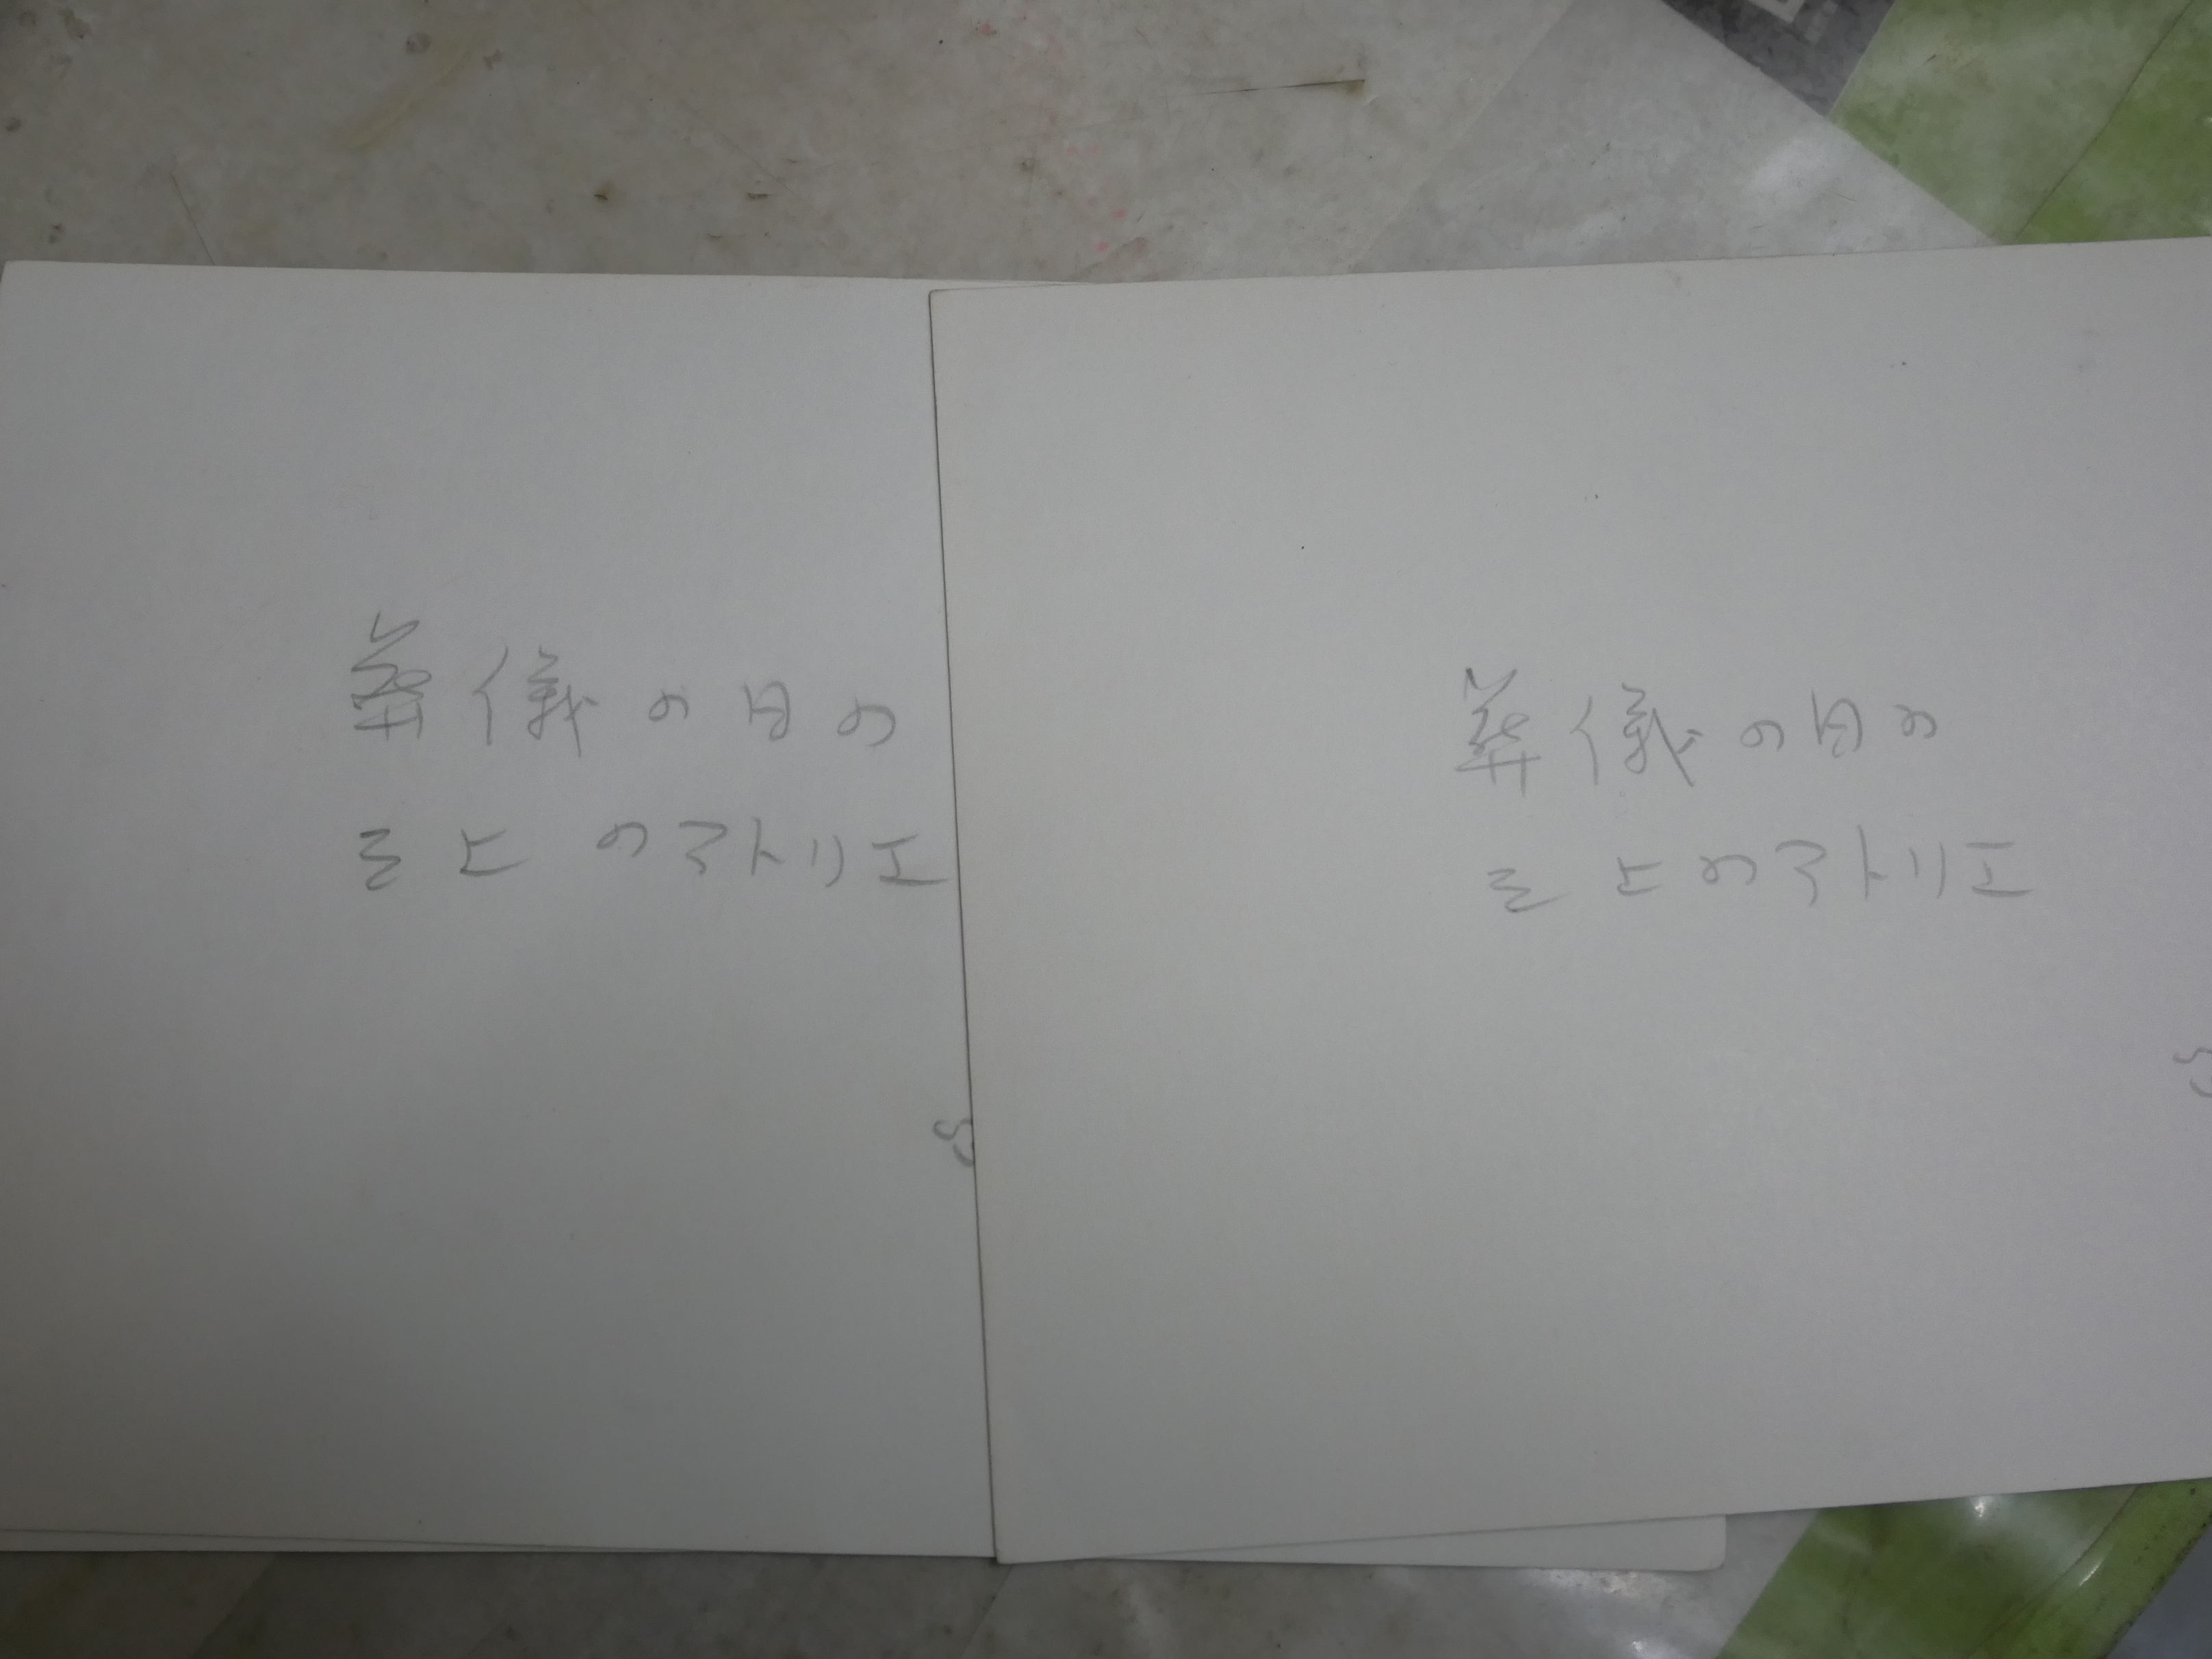 葬儀の日の
三上のアトリエ
葬儀の日の
三上のアトリエ